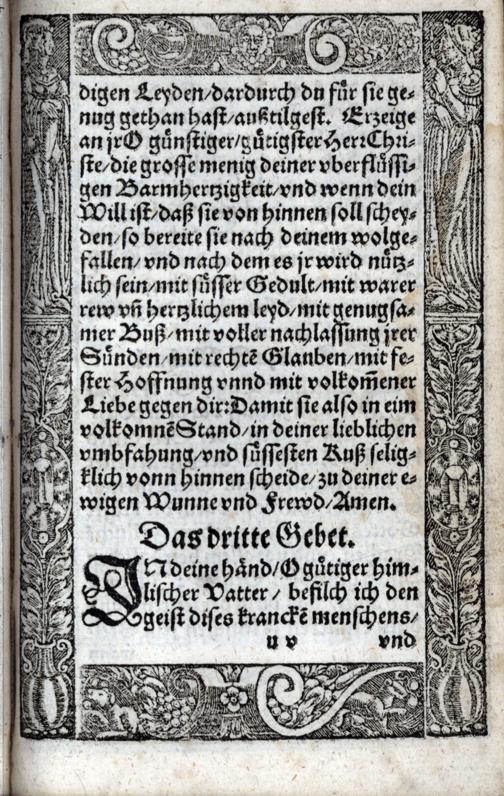 digen Leyden/dardurch du für sie ge⸗
nug gethan hast/außtilgest. Erzeige
an jr O günstiger/gütigster Herr Chri⸗
ste/die grosse menig deiner vberflüssi⸗
gen Barmhertzigkeit/vnd wenn dein
Will ist/daß sie von hinnen soll schey⸗
den/so bereite sie nach deinem wolge⸗
fallen/vnd nach dem es jr wird nütz⸗
lich sein/mit süsser Gedult/mit warer
rew vñ hertzlichem leyd/mit genugsa⸗
mer Buß/mit voller nachlassung jrer
Sünden/mit rechtẽ Glauben/mit fe⸗
ster Hoffnung vnnd mit volkom̃ener
Liebe gegen dir: Damit sie also in eim
volkomnẽ Stand/in deiner lieblichen
vmbfahung/vnd süssesten Kuß selig⸗
klich vonn hinnen scheide/zu deiner e⸗
wigen Wunne vnd Frewd/Amen.
Das dritte Gebet.
IN deine händ/O gütiger him⸗
lischer Vatter/befilch ich den
geist dises kranckẽ menschens/
u v vnd